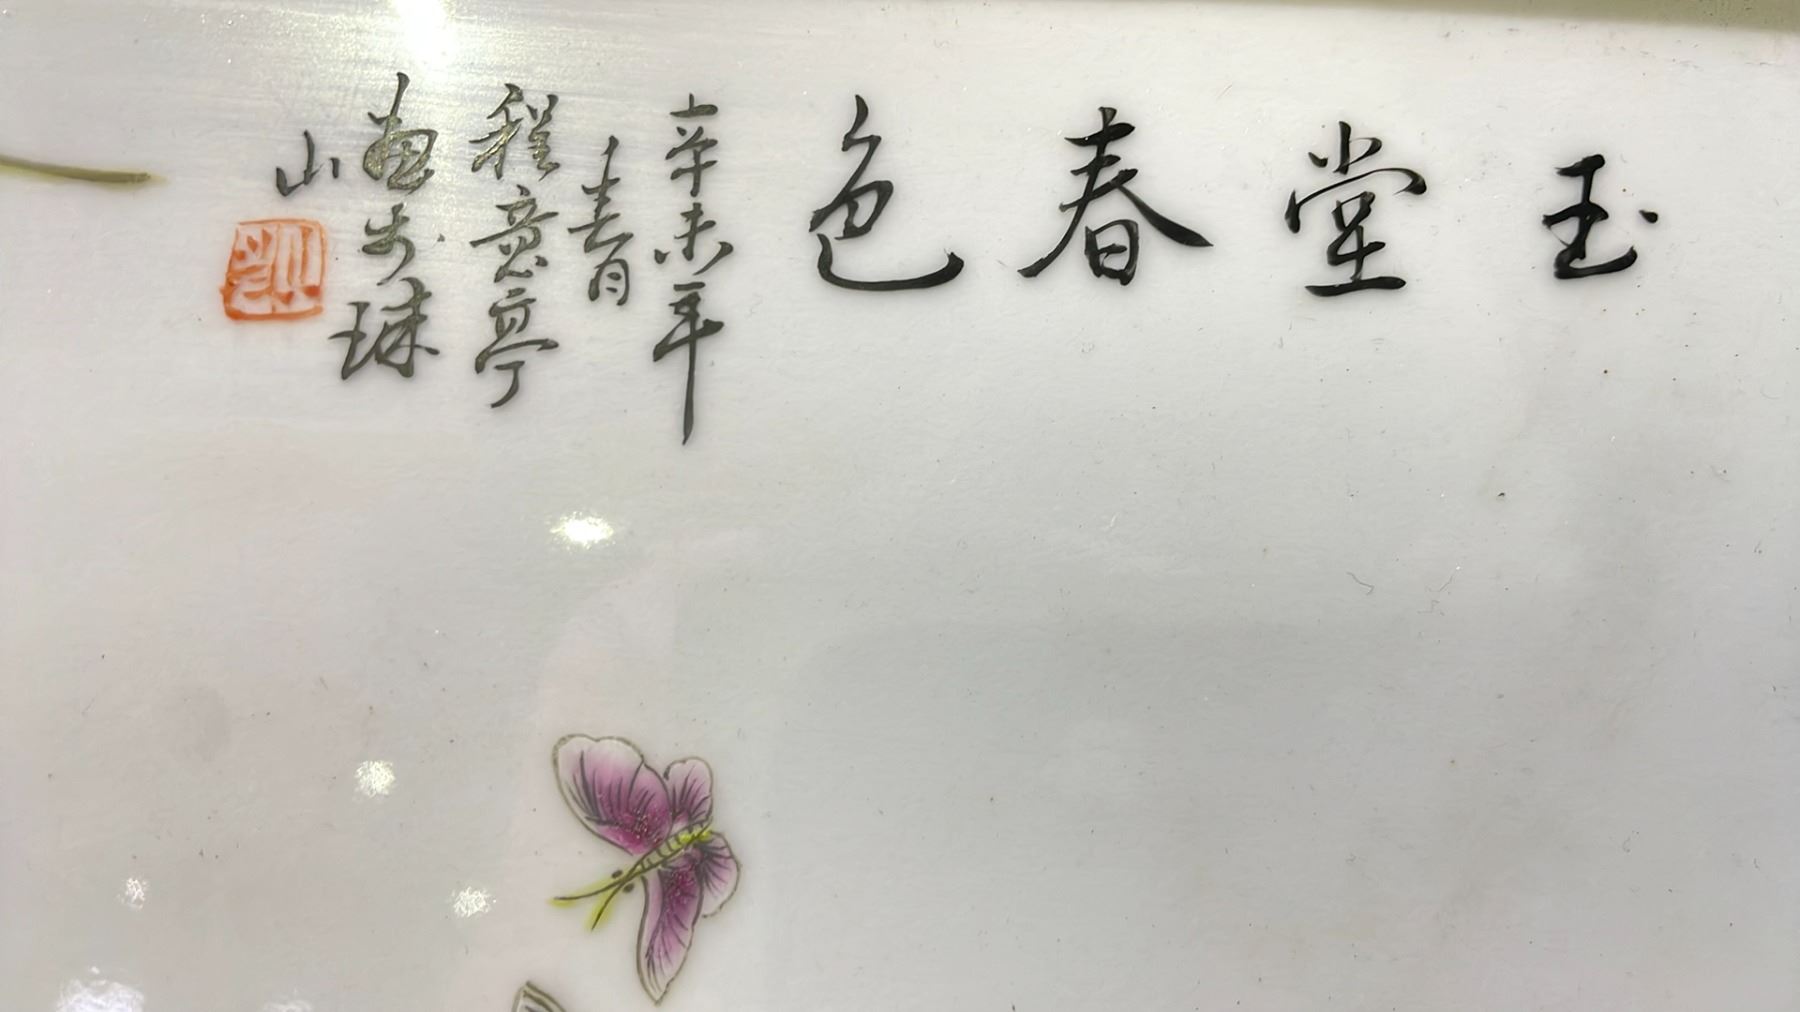 玉堂春色
辛未年
春月
程意亭
画于珠
山